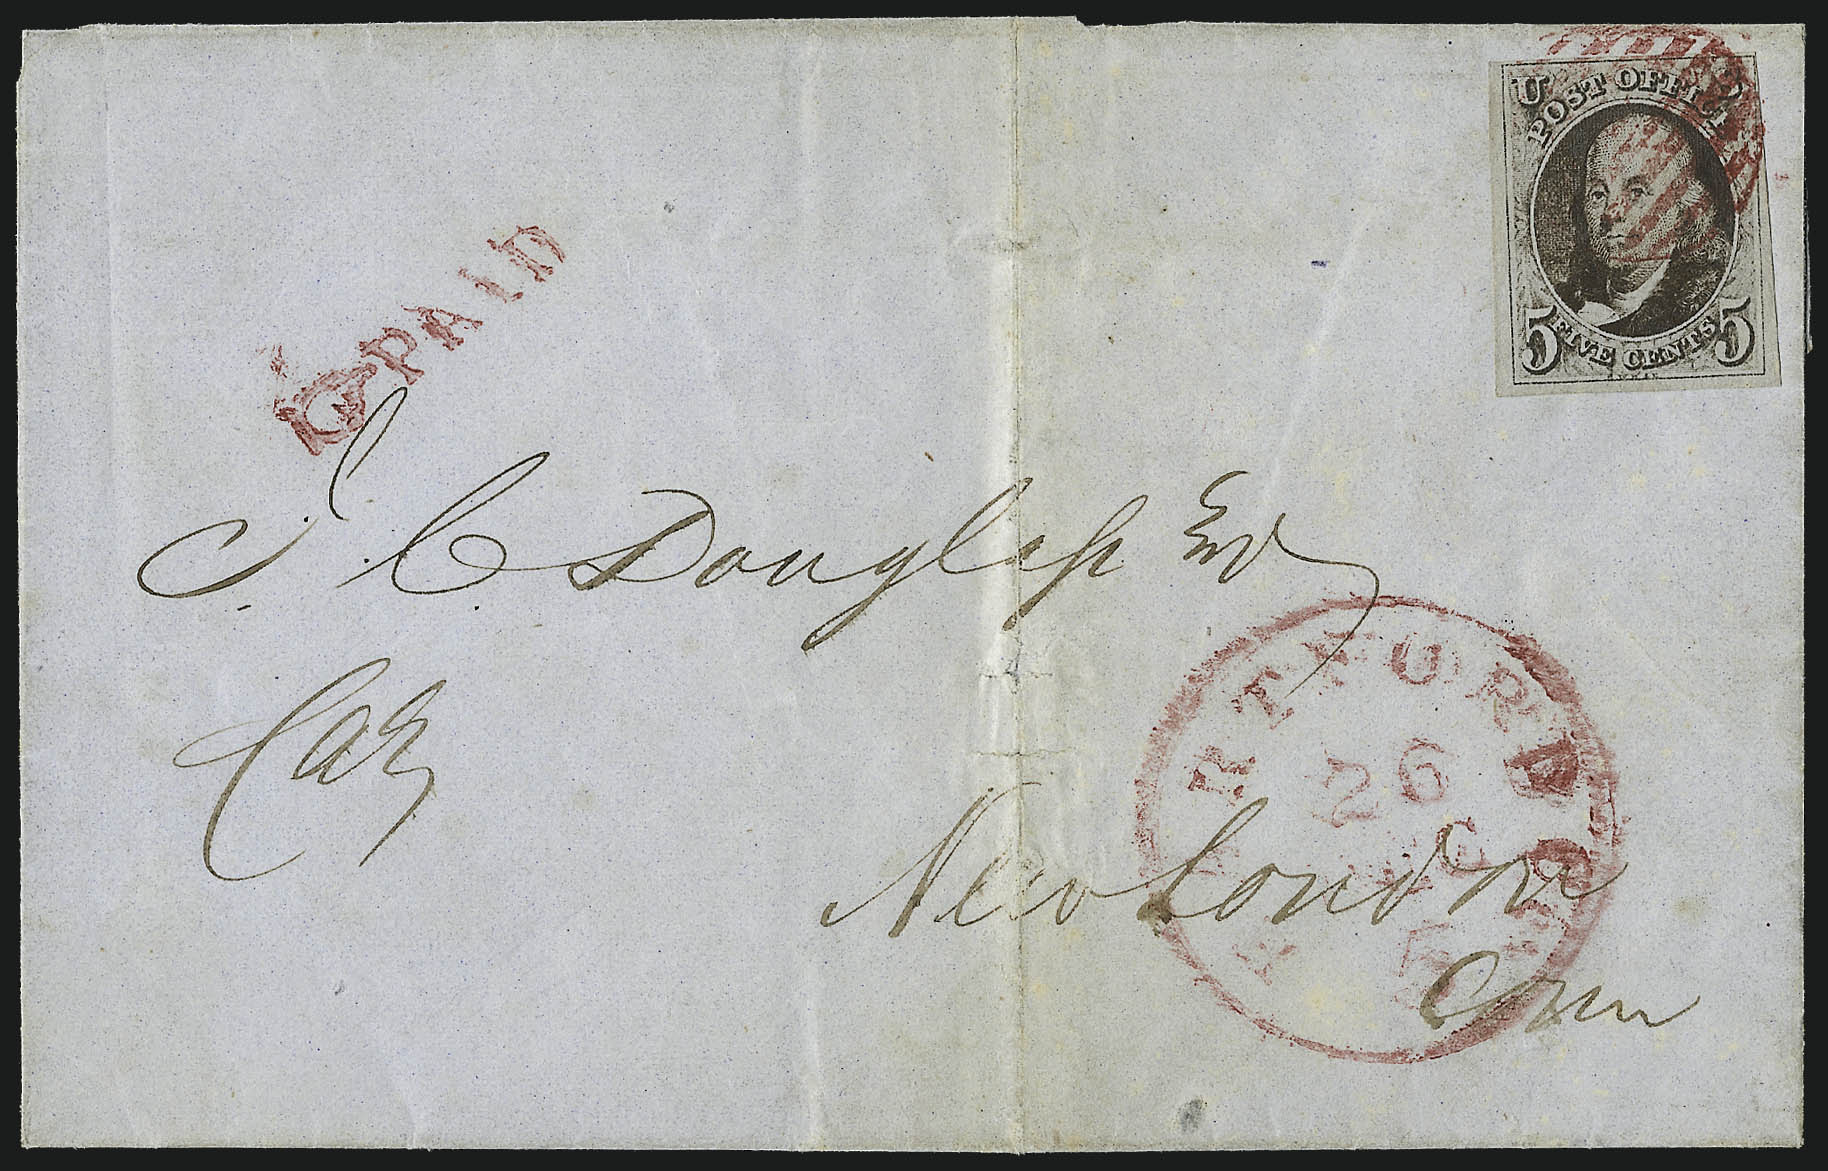 U POST OFFICE
5 FIVE CENTS 5
PAID
J. C. Douglass Esq
Cas
HARTFORD CONN
26
New London
Conn